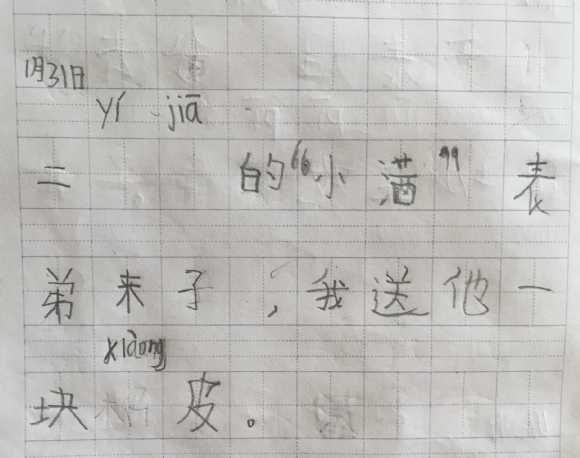 1月31日
yí jiā
二 的“小酒”表
弟来子，我送他一
xiàong
块 皮。